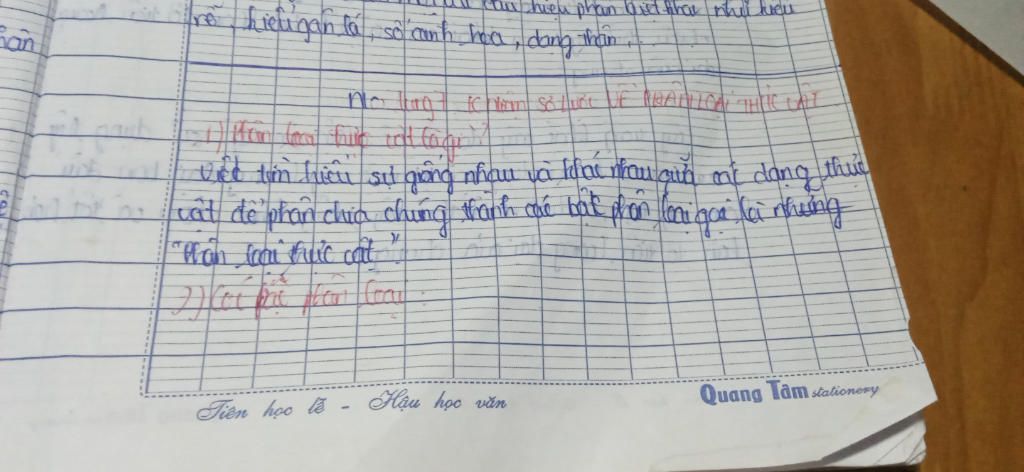 hiệu phân biệt khác như kiểu
rễ, kiểu gân lá, số cánh hoa, dạng thân.
hân
Khái niệm sơ lược VỀ PHÂN LOẠI THỰC VẬT
1) Phân loại thực vật là gì?
Việt tìm hiểu sự giống nhau và khác nhau giữa các dạng thực
vật để phân chia chúng thành các bật phân loại gọi là những
"Phân loại thực vật"
2) Các phân loại
Tiên học lễ - Hậu học văn
Quang Tâm stationery